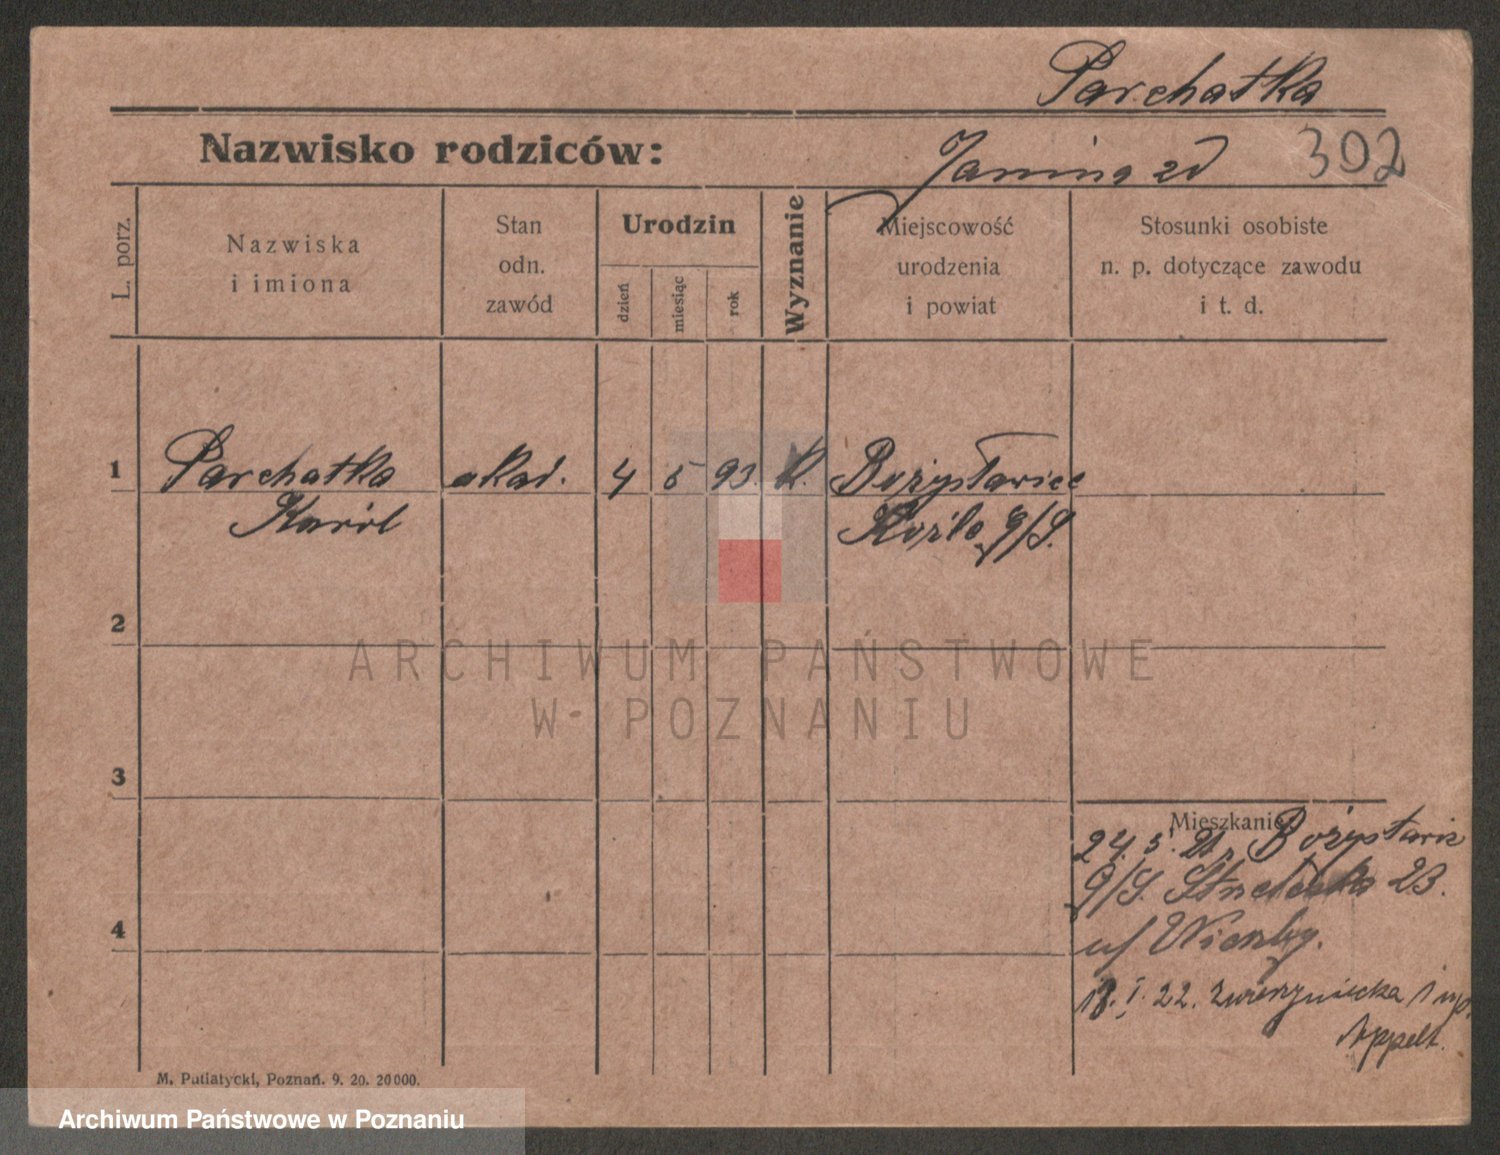 Parchatka
Nazwisko rodziców:
Janina zd
302
L. porz.
Nazwiska
i imiona
Stan
odn.
zawód
Urodzin
dzień
miesiąc
rok
Wyznanie
Miejscowość
urodzenia
i powiat
Stosunki osobiste
n. p. dotyczące zawodu
i t. d.
1
Parchatka
akad.
4
5
93.
k.
Karól
Koźle g/S.
2
ARCHIWUM PAŃSTWOWE
W POZNANIU
3
Mieszkanie:
24. 5. 21.
g/S.
23.
4
u/
18. I. 22. Zwierzyniecka 1 up.
Appelt.
M. Putiatycki, Poznań. 9. 20. 20000.
Archiwum Państwowe w Poznaniu